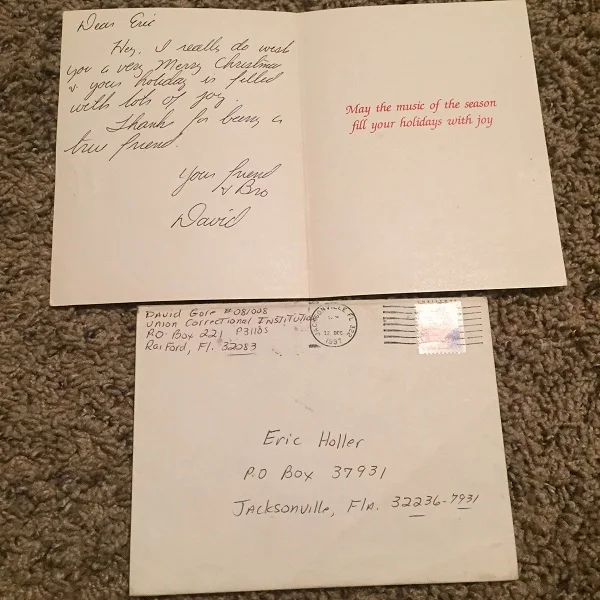 Dear Eric
Hey. I really do wish
you a very Merry Christmas
& your holiday is filled
with lots of joy.
Thanks for being a
true friend.
Your friend
& Bro
David
May the music of the season
fill your holidays with joy
David Gore #081008
Union Correctional Institution
P.O. Box 221 P3110S
Raiford, Fl. 32083
JACKSONVILLE FL
12 DEC
1997
Eric Holler
P.O Box 37931
Jacksonville, Fla. 32236-7931